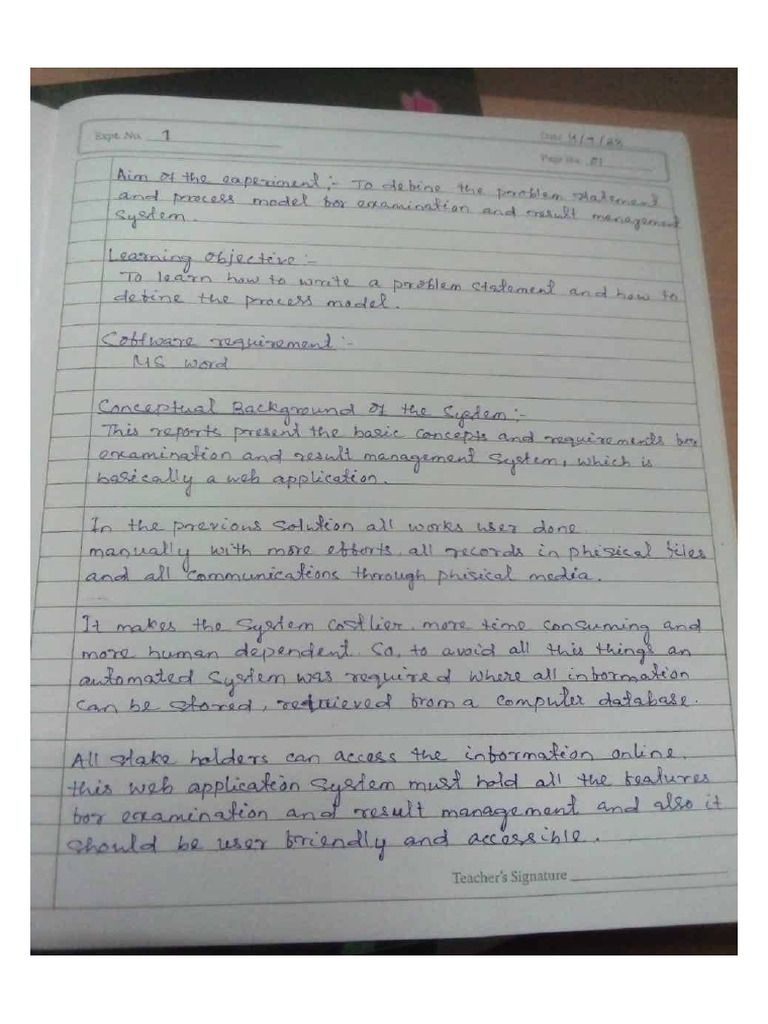 Expt. No. 1
Date 4/7/22
Page No. 01
Aim of the experiment:- To define the problem statement
and process model for examination and result management
system.
Learning Objective:-
To learn how to write a problem statement and how to
define the process model.
Software requirement:-
MS Word
Conceptual Background of the System:-
This reports present the basic concepts and requirements for
examination and result management system, which is
basically a web application.
In the previous solution all works user done
manually with more efforts, all records in phisical files
and all communications through phisical media.
It makes the system costlier, more time consuming and
more human dependent. So, to avoid all this things an
automated system was required where all information
can be stored, retrieved from a computer database.
All stake holders can access the information online.
this web application system must hold all the features
for examination and result management and also it
should be user friendly and accessible.
Teacher's Signature